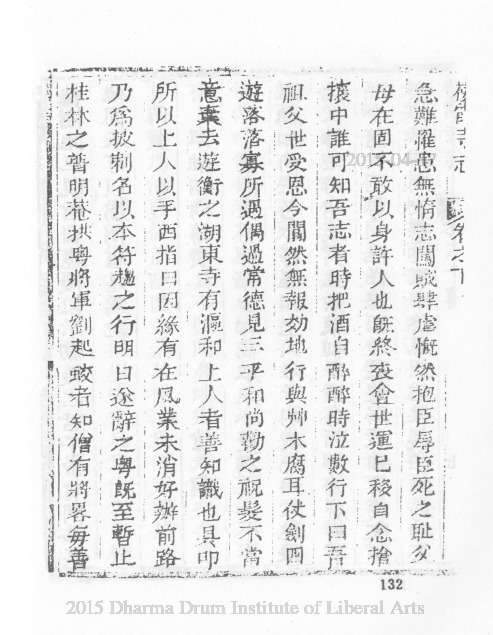 棲霞寺志 卷之下
急難罹患無惰志闖賊肆虐慨然抱臣辱臣死之耻父
母在固不敢以身許人也旣終喪會世運已移自念搶
攘中誰可知吾志者時把酒自醉醉時泣數行下曰吾
祖父世受恩今闃然無報効地行與艸木腐耳仗劍四
遊落落寡所遇偶過常德見三平和尚勸之祝髮不當
意棄去遊衡之湖東寺有漚和上人者善知識也具叩
所以上人以手西指曰因緣有在夙業未消好辦前路
乃爲披剃名以本符趣之行明日遂辭之粤旣至暫止
桂林之普明菴拱粤將軍劉起蛟者知僧有將畧每善
132
2015 Dharma Drum Institute of Liberal Arts